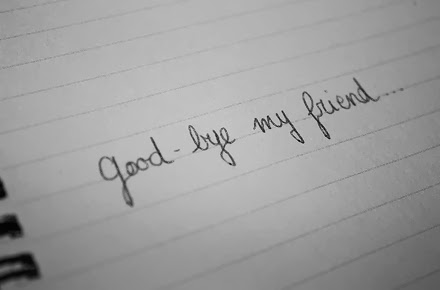 Good-bye my friend...